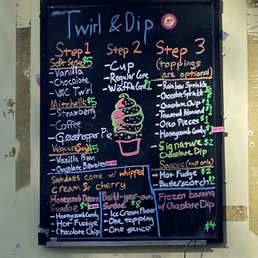 Twirl & Dip
Step 1
Soft Serve $5
-Vanilla
-Chocolate
-V&C Twirl
Mitchell's $5
-Strawberry
-Coffee
-Grasshopper Pie
Vegan $5
-Vanilla Bean
-Chocolate
Step 2
-Cup
-Regular Cone
-Waffle Cone $1
Step 3
(toppings
are optional)
-Rainbow Sprinkle
-Chocolate Sprinkle
-Chocolate Chip
-Toasted Almond
-Oreo Pieces
-Honeycomb Candy
-Signature $2
Chocolate Dip
Sauces (cup only)
-Hot Fudge $2
-Butterscotch
Sundaes come w/ whipped
cream & cherry
Honeycomb Dream
Sundae $9
-Honeycomb Candy
-Hot Fudge
-Chocolate Chip
Build-your-own
Sundae $8
-Ice Cream Flavor
-One topping
-One sauce
Frozen banana
w/ Chocolate Dip
$4